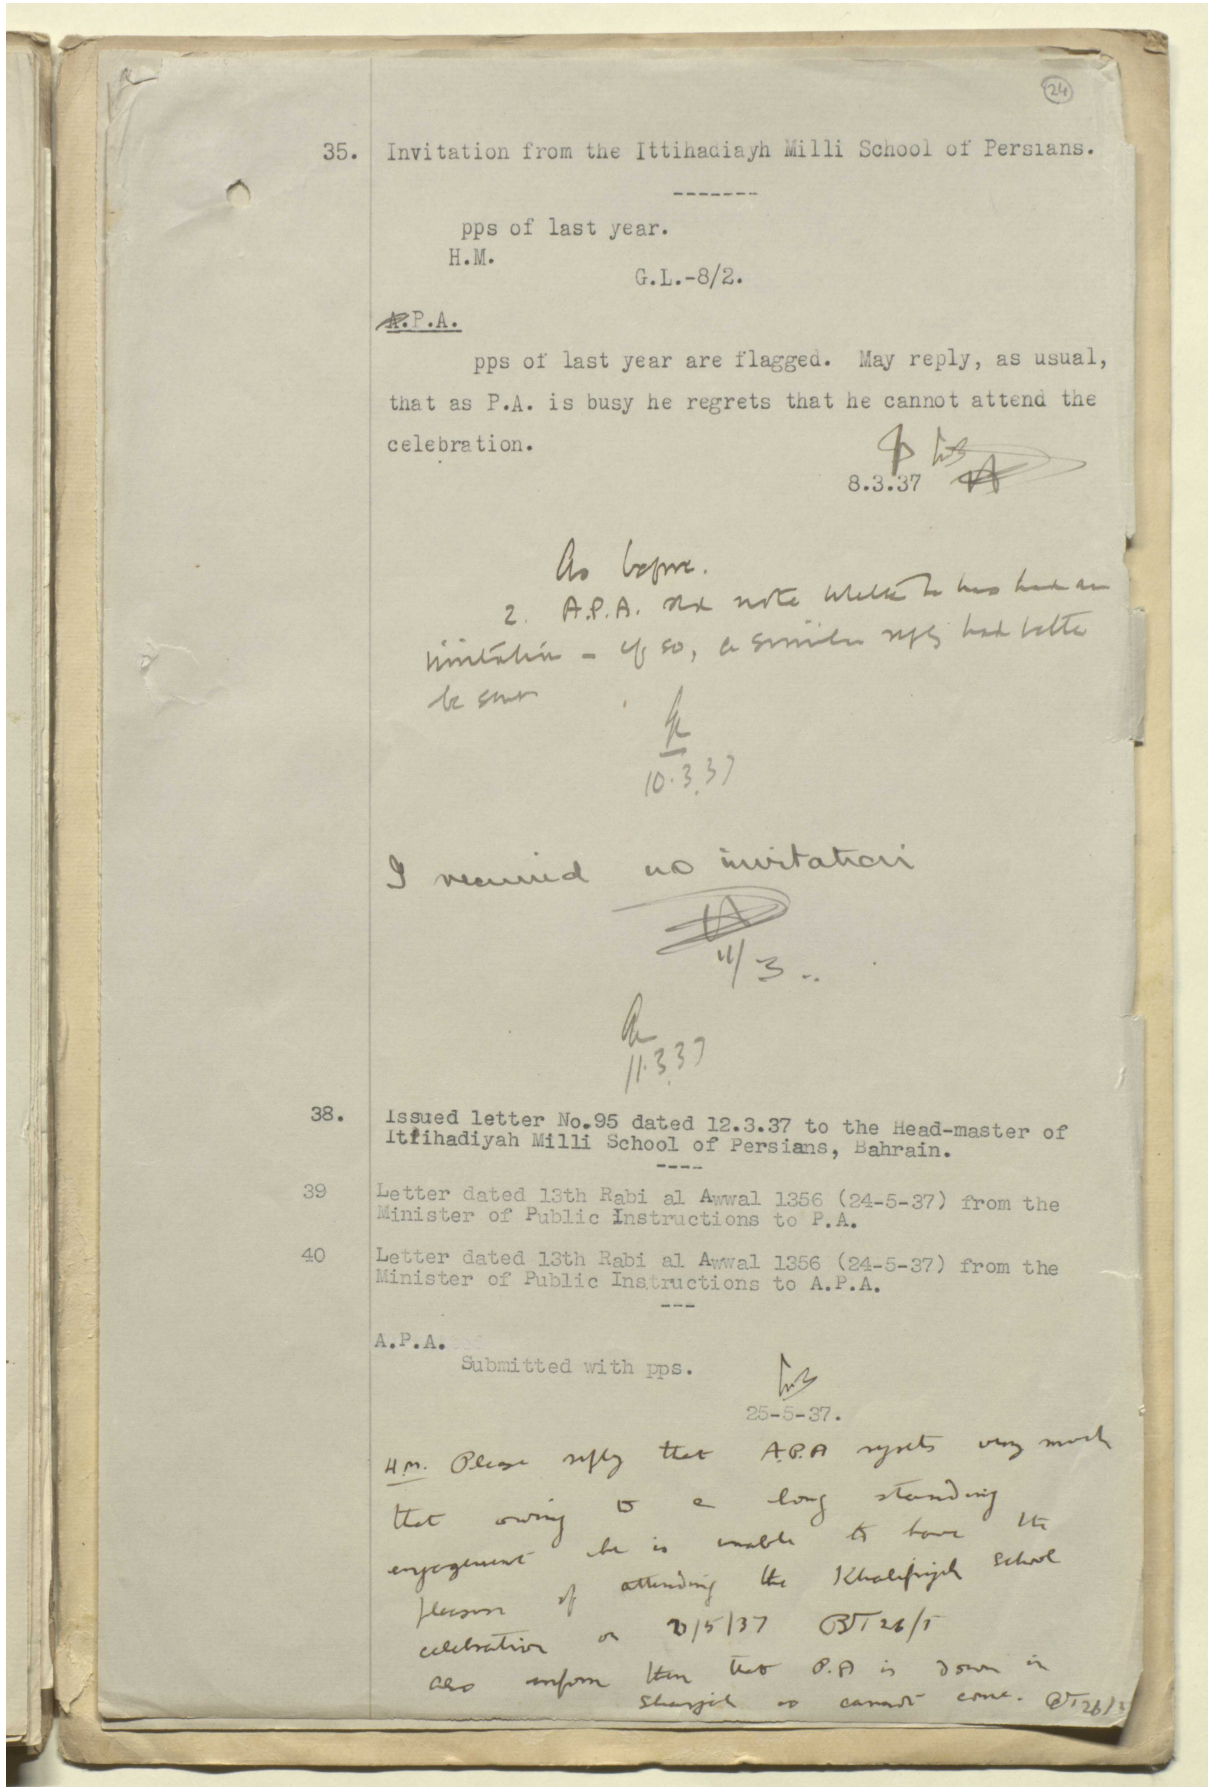 24
35. Invitation from the Ittihadiayh Milli School of Persians.
-------
pps of last year.
H.M.
G.L.-8/2.
A.P.A.
pps of last year are flagged. May reply, as usual,
that as P.A. is busy he regrets that he cannot attend the
celebration.
8.3.37
As before.
2. A.P.A. shd note whether he has had an
invitation - if so, a similar reply had better
be sent
10.3.37
I received no invitation
11/3
11.3.37
38. Issued letter No.95 dated 12.3.37 to the Head-master of
Ittihadiyah Milli School of Persians, Bahrain.
----
39 Letter dated 13th Rabi al Awwal 1356 (24-5-37) from the
Minister of Public Instructions to P.A.
40 Letter dated 13th Rabi al Awwal 1356 (24-5-37) from the
Minister of Public Instructions to A.P.A.
---
A.P.A.
Submitted with pps.
25-5-37.
H.M. Please reply that A.P.A regrets very much
that owing to a long standing
engagement he is unable to have the
pleasure of attending the Khalifiyah School
celebration on /5/37 26/5
also inform them that P.A is down in
Sharjah so cannot come. 26/5